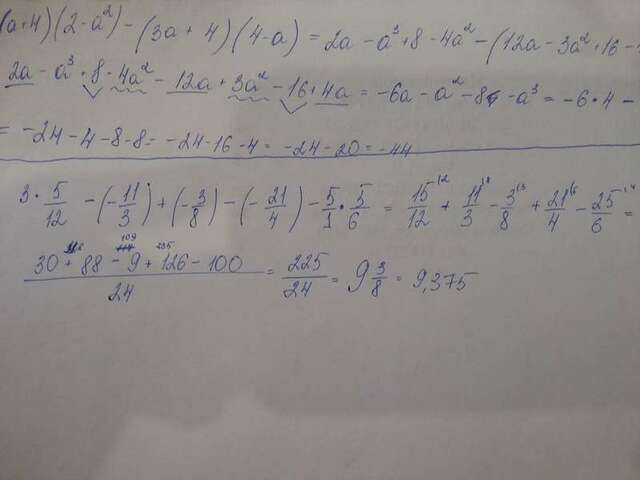 (a+4)(2-a²)-(3a+4)(4-a)=2a-a³+8-4a²-(12a-3a²+16-
2a-a³+8-4a²-12a+3a²-16+4a=-6a-a²-8-a³=-6•4-
=-24-4-8-8=-24-16-4=-24-20=-44
3•5/12-(-11/3)+(-3/8)-(-21/4)-5/1•5/6=15/12+11/3-3/8+21/4-25/6=
(30+88-9+126-100)/24=225/24=9 3/8=9,375